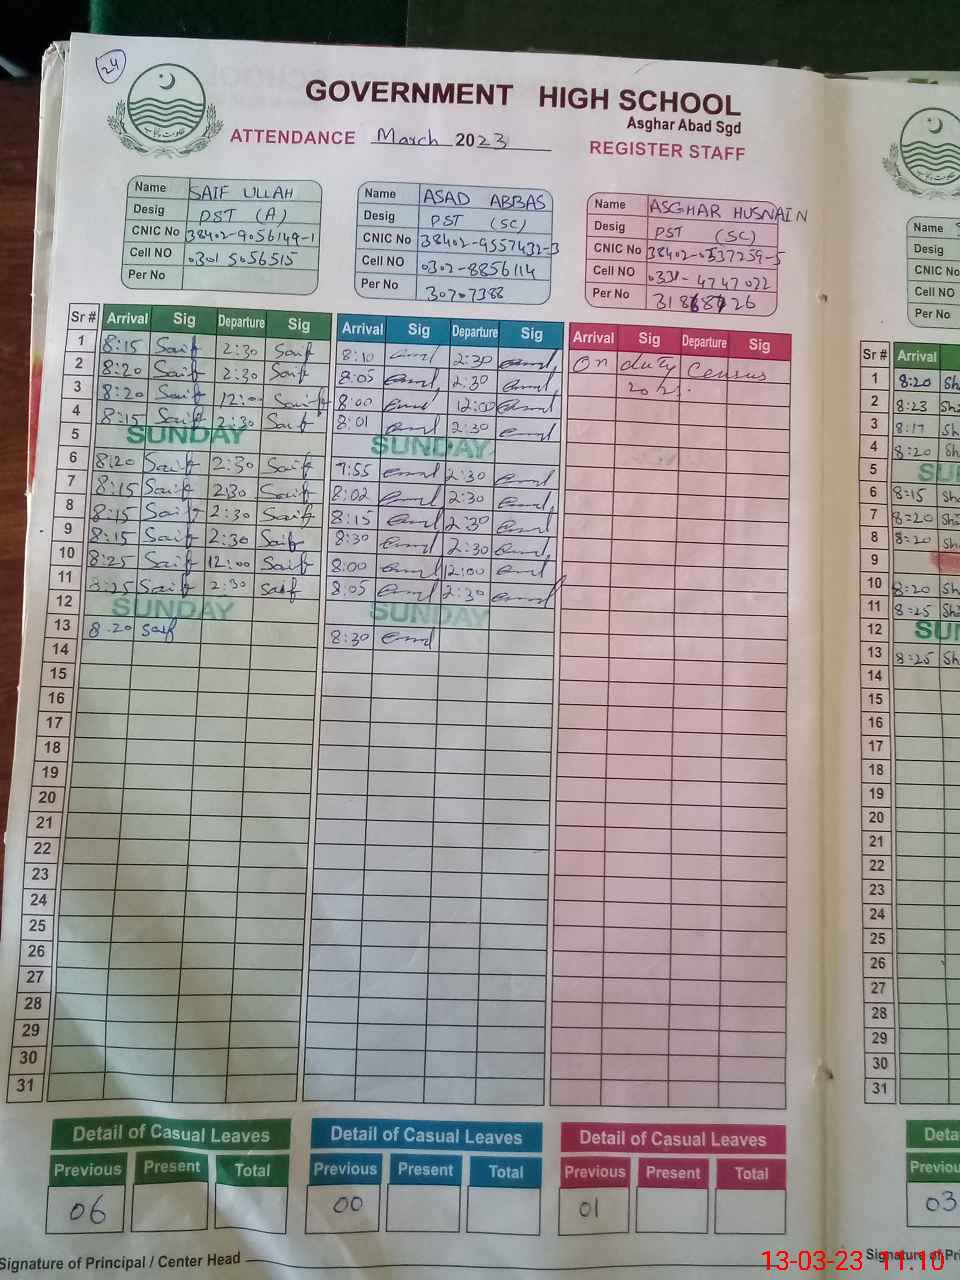 24
GOVERNMENT HIGH SCHOOL
Asghar Abad Sgd
ATTENDANCE March 2023 REGISTER STAFF
Name SAIF ULLAH
Desig PST (A)
CNIC No 38402-9056149-1
Cell NO 0301 5056515
Per No
Name ASAD ABBAS
Desig PST (SC)
CNIC No 38402-9557432-3
Cell NO 0302-8856114
Per No 30707388
Name ASGHAR HUSNAIN
Desig PST (SC)
CNIC No 38402-0537259-5
Cell NO 0331-4747022
Per No
Name
Desig
CNIC No
Cell NO
Per No
Sr # Arrival Sig Departure Sig Arrival Sig Departure Sig Arrival Sig Departure Sig Sr # Arrival
1 8:15 Saif 2:30 Saif 8:10 2:30 On duty Census 1 8:20 Sh
2 8:20 Saif 2:30 Saif 8:05 2:30 2 8:23 Sh
3 8:20 Saif 12:00 Saif 8:00 12:00 3 8:17 Sh
4 8:15 Saif 2:30 Saif 8:01 2:30 4 8:20 Sh
5 SUNDAY SUNDAY 5 SU
6 8:20 Saif 2:30 Saif 7:55 2:30 6 8=15 Sh
7 8:15 Saif 2:30 Saif 8:02 2:30 7 8=20 Sh
8 8:15 Saif 2:30 Saif 8:15 2:30 8 8=20 Sh
9 8:15 Saif 2:30 Saif 8:30 2:30 9
10 8:25 Saif 12:00 Saif 8:00 12:00 10 8=20 Sh
11 8:25 Saif 2:30 Saif 8:05 2:30 11 8=25 Sh
12 SUNDAY SUNDAY 12 SUN
13 8:20 Saif 8:30 13 8=25 Sh
14 14
15 15
16 16
17 17
18 18
19 19
20 20
21 21
22 22
23 23
24 24
25 25
26 26
27 27
28 28
29 29
30 30
31 31
Detail of Casual Leaves Detail of Casual Leaves Detail of Casual Leaves Deta
Previous Present Total Previous Present Total Previous Present Total Previou
06 00 01 03
Signature of Principal / Center Head Signature of Pri
13-03-23 11:10